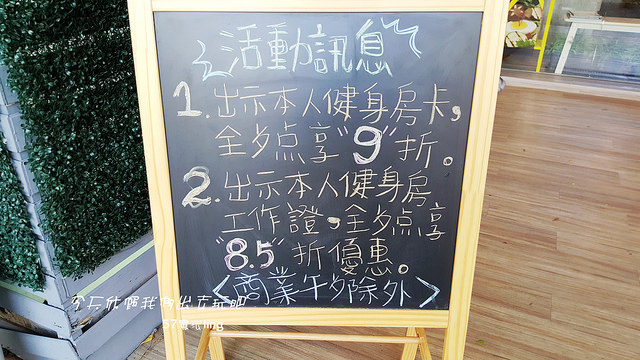 活動訊息
1.出示本人健身房卡,
全夕点享"9"折。
2.出示本人健身房
工作證,全夕点享
"8.5"折優惠。
<商業午夕除外>